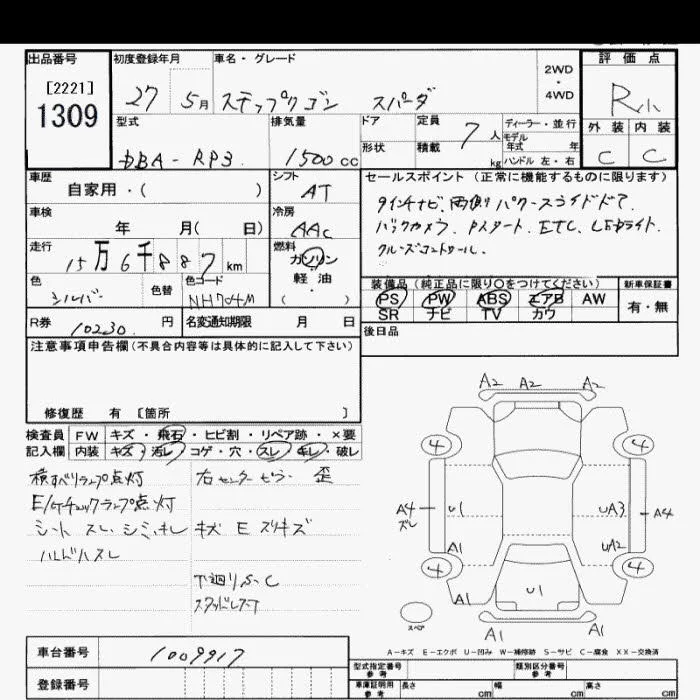 出品番号
[2221]
1309
初度登録年月
27 5月
車名・グレード
ステップワゴン スパーダ
2WD
・
4WD
評価点
R
外装 内装
C C
型式
DBA-RP3
排気量
1500cc
ドア
形状
定員 7人
積載 kg
ディーラー・並行
モデル
年式 年
ハンドル 左・右
車歴
自家用・( )
シフト
AT
車検
年 月( 日)
冷房
AAC
走行
15万6千887km
燃料
ガソリン
軽油
( )
色
シルバー
色替
色コード
NH704M
R券 10230 円
名変通知期限 月 日
セールスポイント(正常に機能するものに限ります)
9インチナビ、両側パワースライドドア、
バックカメラ、Pスタート、ETC、LEDライト、
クルーズコントロール、
装備品(純正品に限り○をつけてください)
PS PW ABS エアB AW
SR ナビ TV カワ
新車保証書
有・無
後日品
注意事項申告欄(不具合内容等は具体的に記入して下さい)
修復歴 有 [箇所 ]
検査員
記入欄
FW キズ・飛石・ヒビ割・リペア跡・×要
内装 キズ・汚レ・コゲ・穴・スレ・キレ・破レ
横すべりランプ点灯
E/Gチェックランプ点灯
シート スレ シミ キレ
ハンドルスレ
右センターピラー 歪
キズ E スリキズ
下廻りS・C
スタッドレス
A2 A2 A2
4 4
A4
ズレ
U1 UA3 A4
A1 UA2
4 4
A1 U1
A1 A1
スペア
A-キズ E-エクボ U-凹み W-補修跡 S-サビ C-腐食 XX-交換済
車台番号 1009917
登録番号
型式指定番号
参考
類別区分番号
参考
車庫証明用
参考
長さ cm 幅 cm 高さ cm